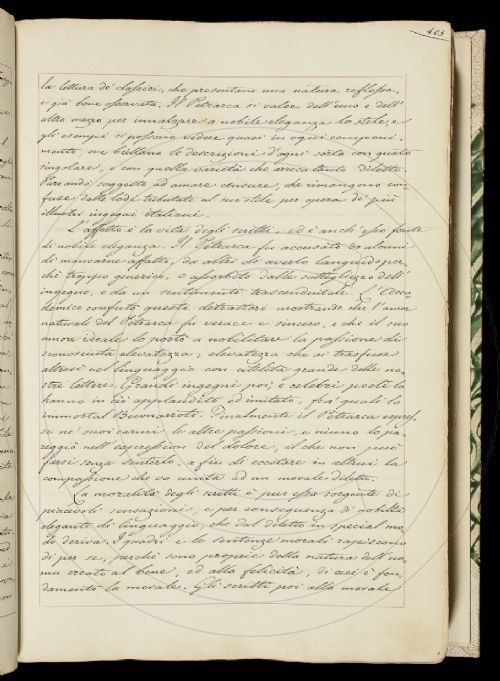 403
la lettura de' classici, che presentano una natura riflessa,
e già bene osservata. Il Petrarca si valse dell'uno e dell'
altro mezzo per innalzare a nobile eleganza lo stile; e
gli esempi si possono vedere quasi in ogni componi-
mento, ove brillano le descrizioni d'ogni sorta con gusto
singolare, e con quella varietà che arreca tanto diletto.
Furono soggette ad amare censure, che rimangono con
fuse dalle lodi tributate al suo stile per opera de' più
illustri ingegni italiani.
L'affetto è la vita degli scritti, ed è anch'esso fonte
di nobile eleganza. Il Petrarca fu accusato da alcuni
di mancare affetto, da altri di averlo languido, per-
chè troppo generico, o assorbito dalle sottigliezze dell'
ingegno, e da un sentimento trascendentale. L'Acca
demico confutò questi detrattori mostrando che l'amor
naturale del Petrarca fu verace e sincero, e che il suo
amor ideale lo portò a nobilitare la passione di
sconosciuta elevatezza; elevatezza che si trasfuse
altresì nel linguaggio con utilità grande delle no-
stre lettere. Grandi ingegni poi, e celebri poeti lo
hanno in ciò applaudito ed imitato, fra' quali lo
immortal Buonarroti. Finalmente il Petrarca espres-
se ne' suoi carmi le altre passioni, e niuno lo pa-
reggiò nell'espression del dolore, il che non può
farsi senza sentirlo, a fin di eccitare in altrui la
compassione che va unita ad un morale diletto.
La moralità degli scritti è pur essa sorgente di
piacevoli sensazioni, e per conseguenza di nobiltà
elegante di linguaggio, che dal diletto in special mo
do deriva. I quadri e le sentenze morali rapiscono
di per se, perchè sono proprie della natura dell'uo-
mo creato al bene, ed alla felicità, di cui è fon-
damento la morale. Gli scritti poi alla morale